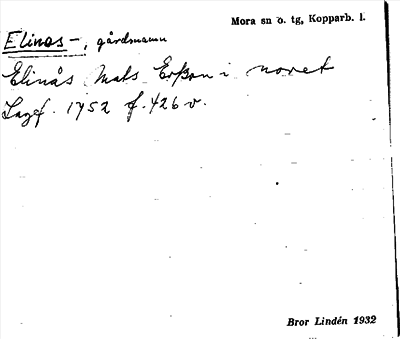 Mora sn o. tg, Kopparb. l.
Elinas-, gårdsnamn
Elinås Mats Erson i noret
Lagf. 1752 f. 426 v.
Bror Lindén 1932